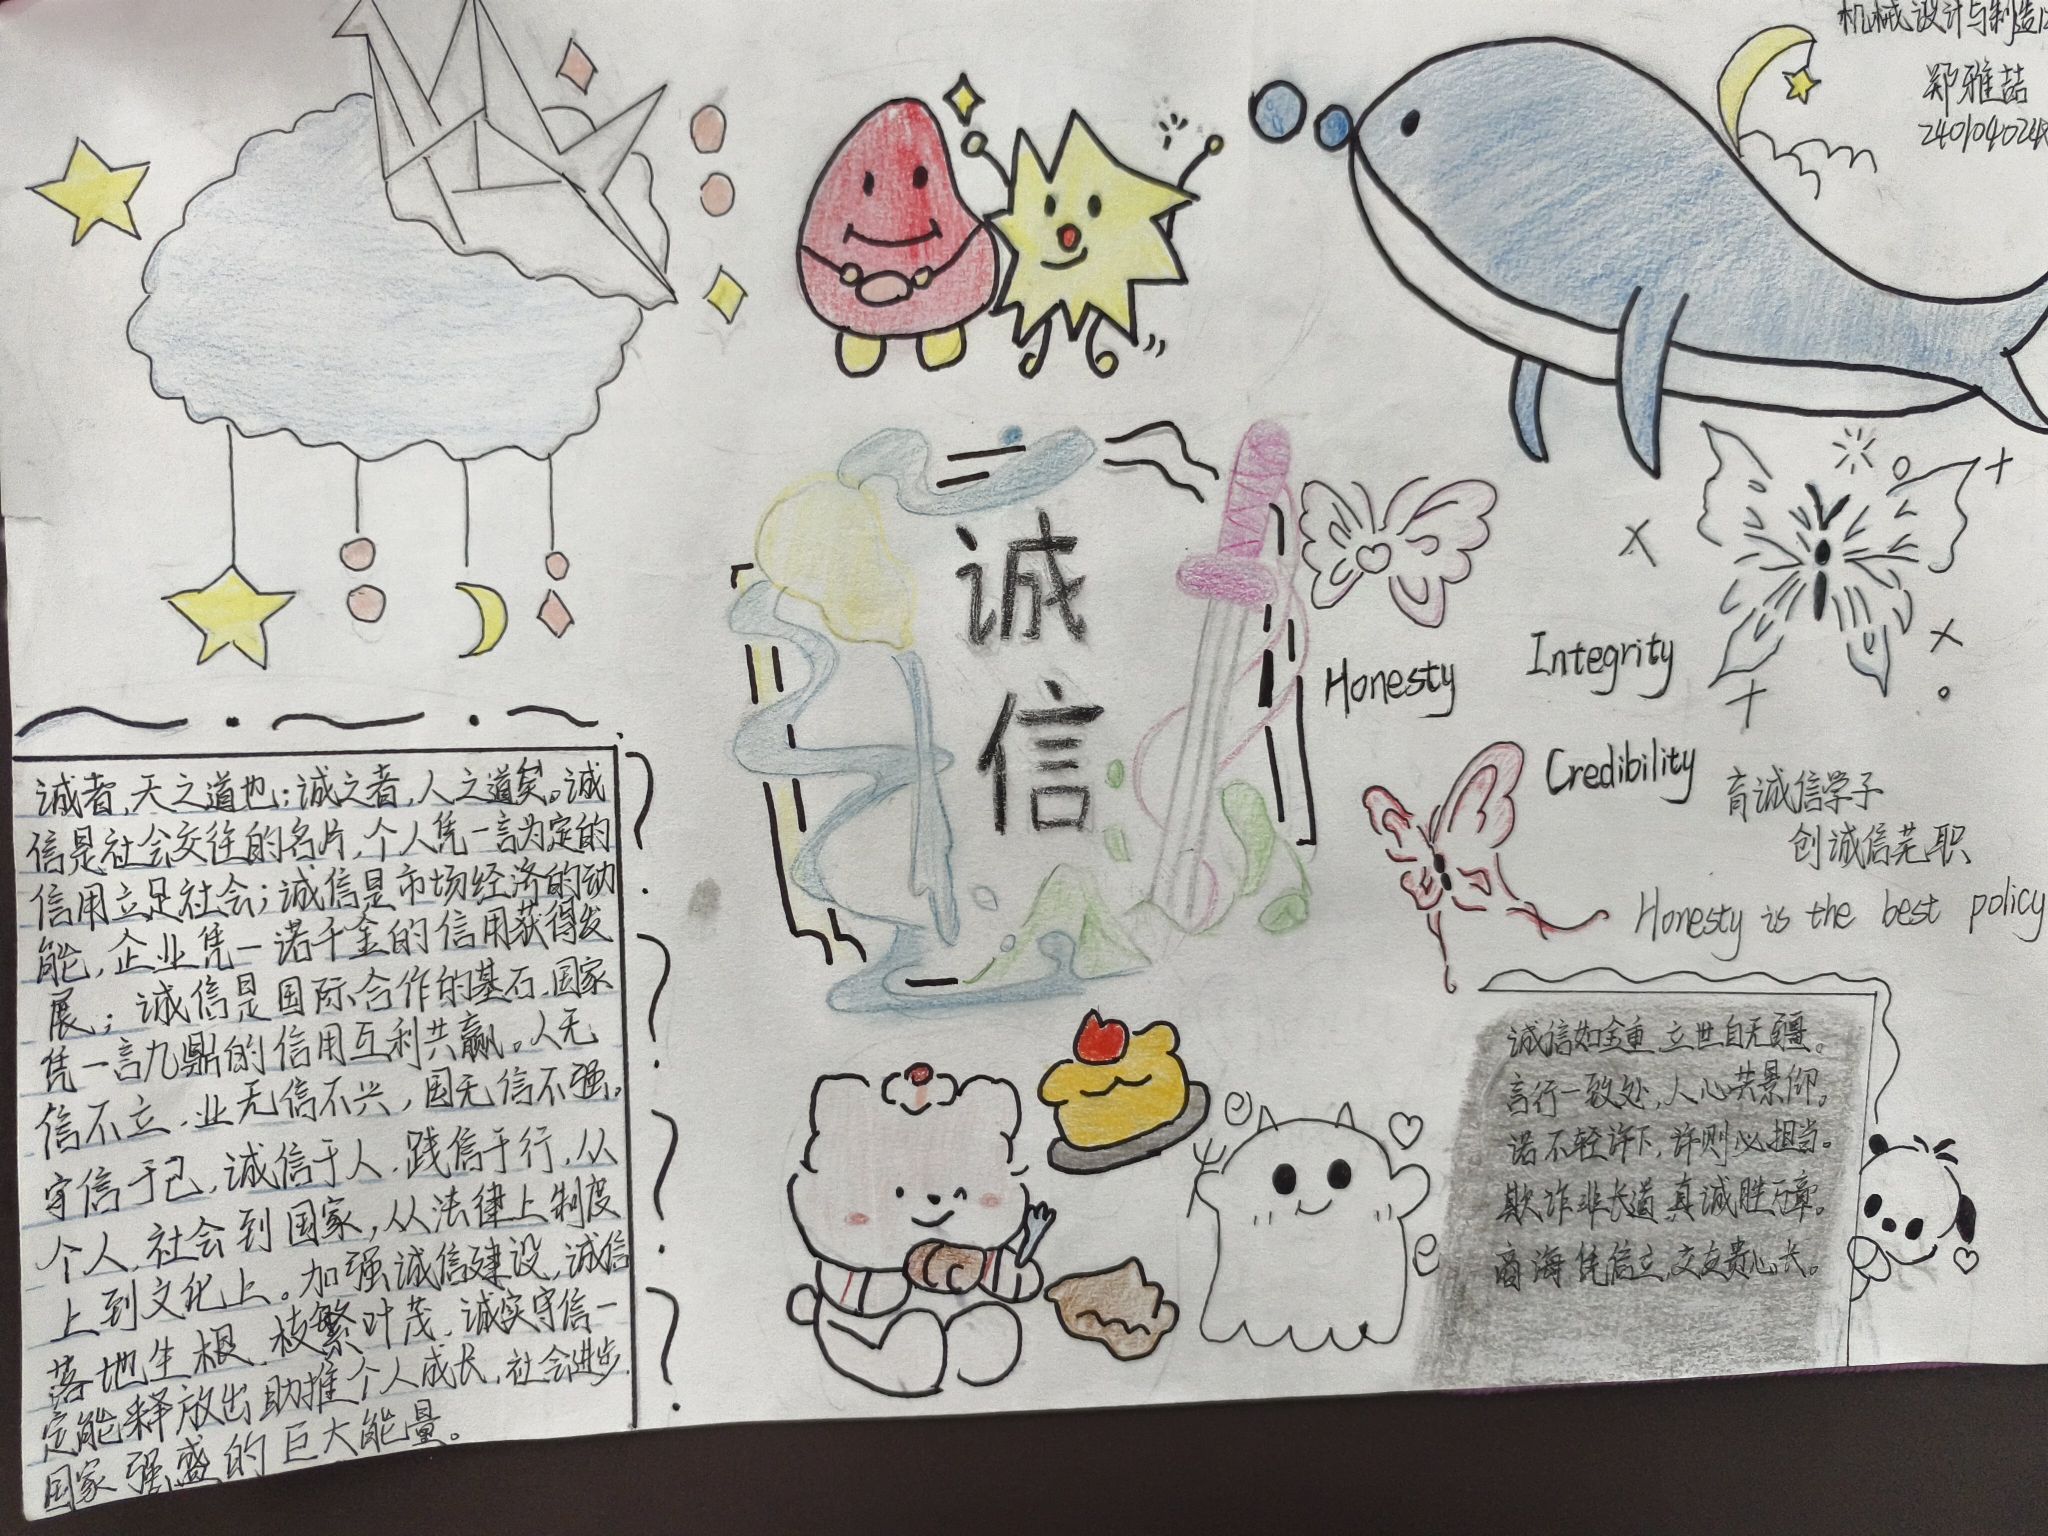 机械设计与制造
郑雅喆
240104024
诚
信
Honesty
Integrity
Credibility
育诚信学子
创诚信芜职
Honesty is the best policy
诚者，天之道也；诚之者，人之道矣。诚
信是社会交往的名片，个人凭一言为定的
信用立足社会；诚信是市场经济的动
能，企业凭一诺千金的信用获得发
展；诚信是国际合作的基石，国家
凭一言九鼎的信用互利共赢。人无
信不立，业无信不兴，国无信不强。
守信于己，诚信于人，践信于行，从
个人，社会到国家，从法律上制度
上到文化上。加强诚信建设，诚信
落地生根，枝繁叶茂，诚实守信一
定能释放出助推个人成长，社会进步，
国家强盛的巨大能量。
诚信如金重，立世自无疆。
言行一致处，人心共景仰。
诺不轻许下，许则必担当。
欺诈非长道，真诚胜万章。
商海凭信立，交友贵心长。